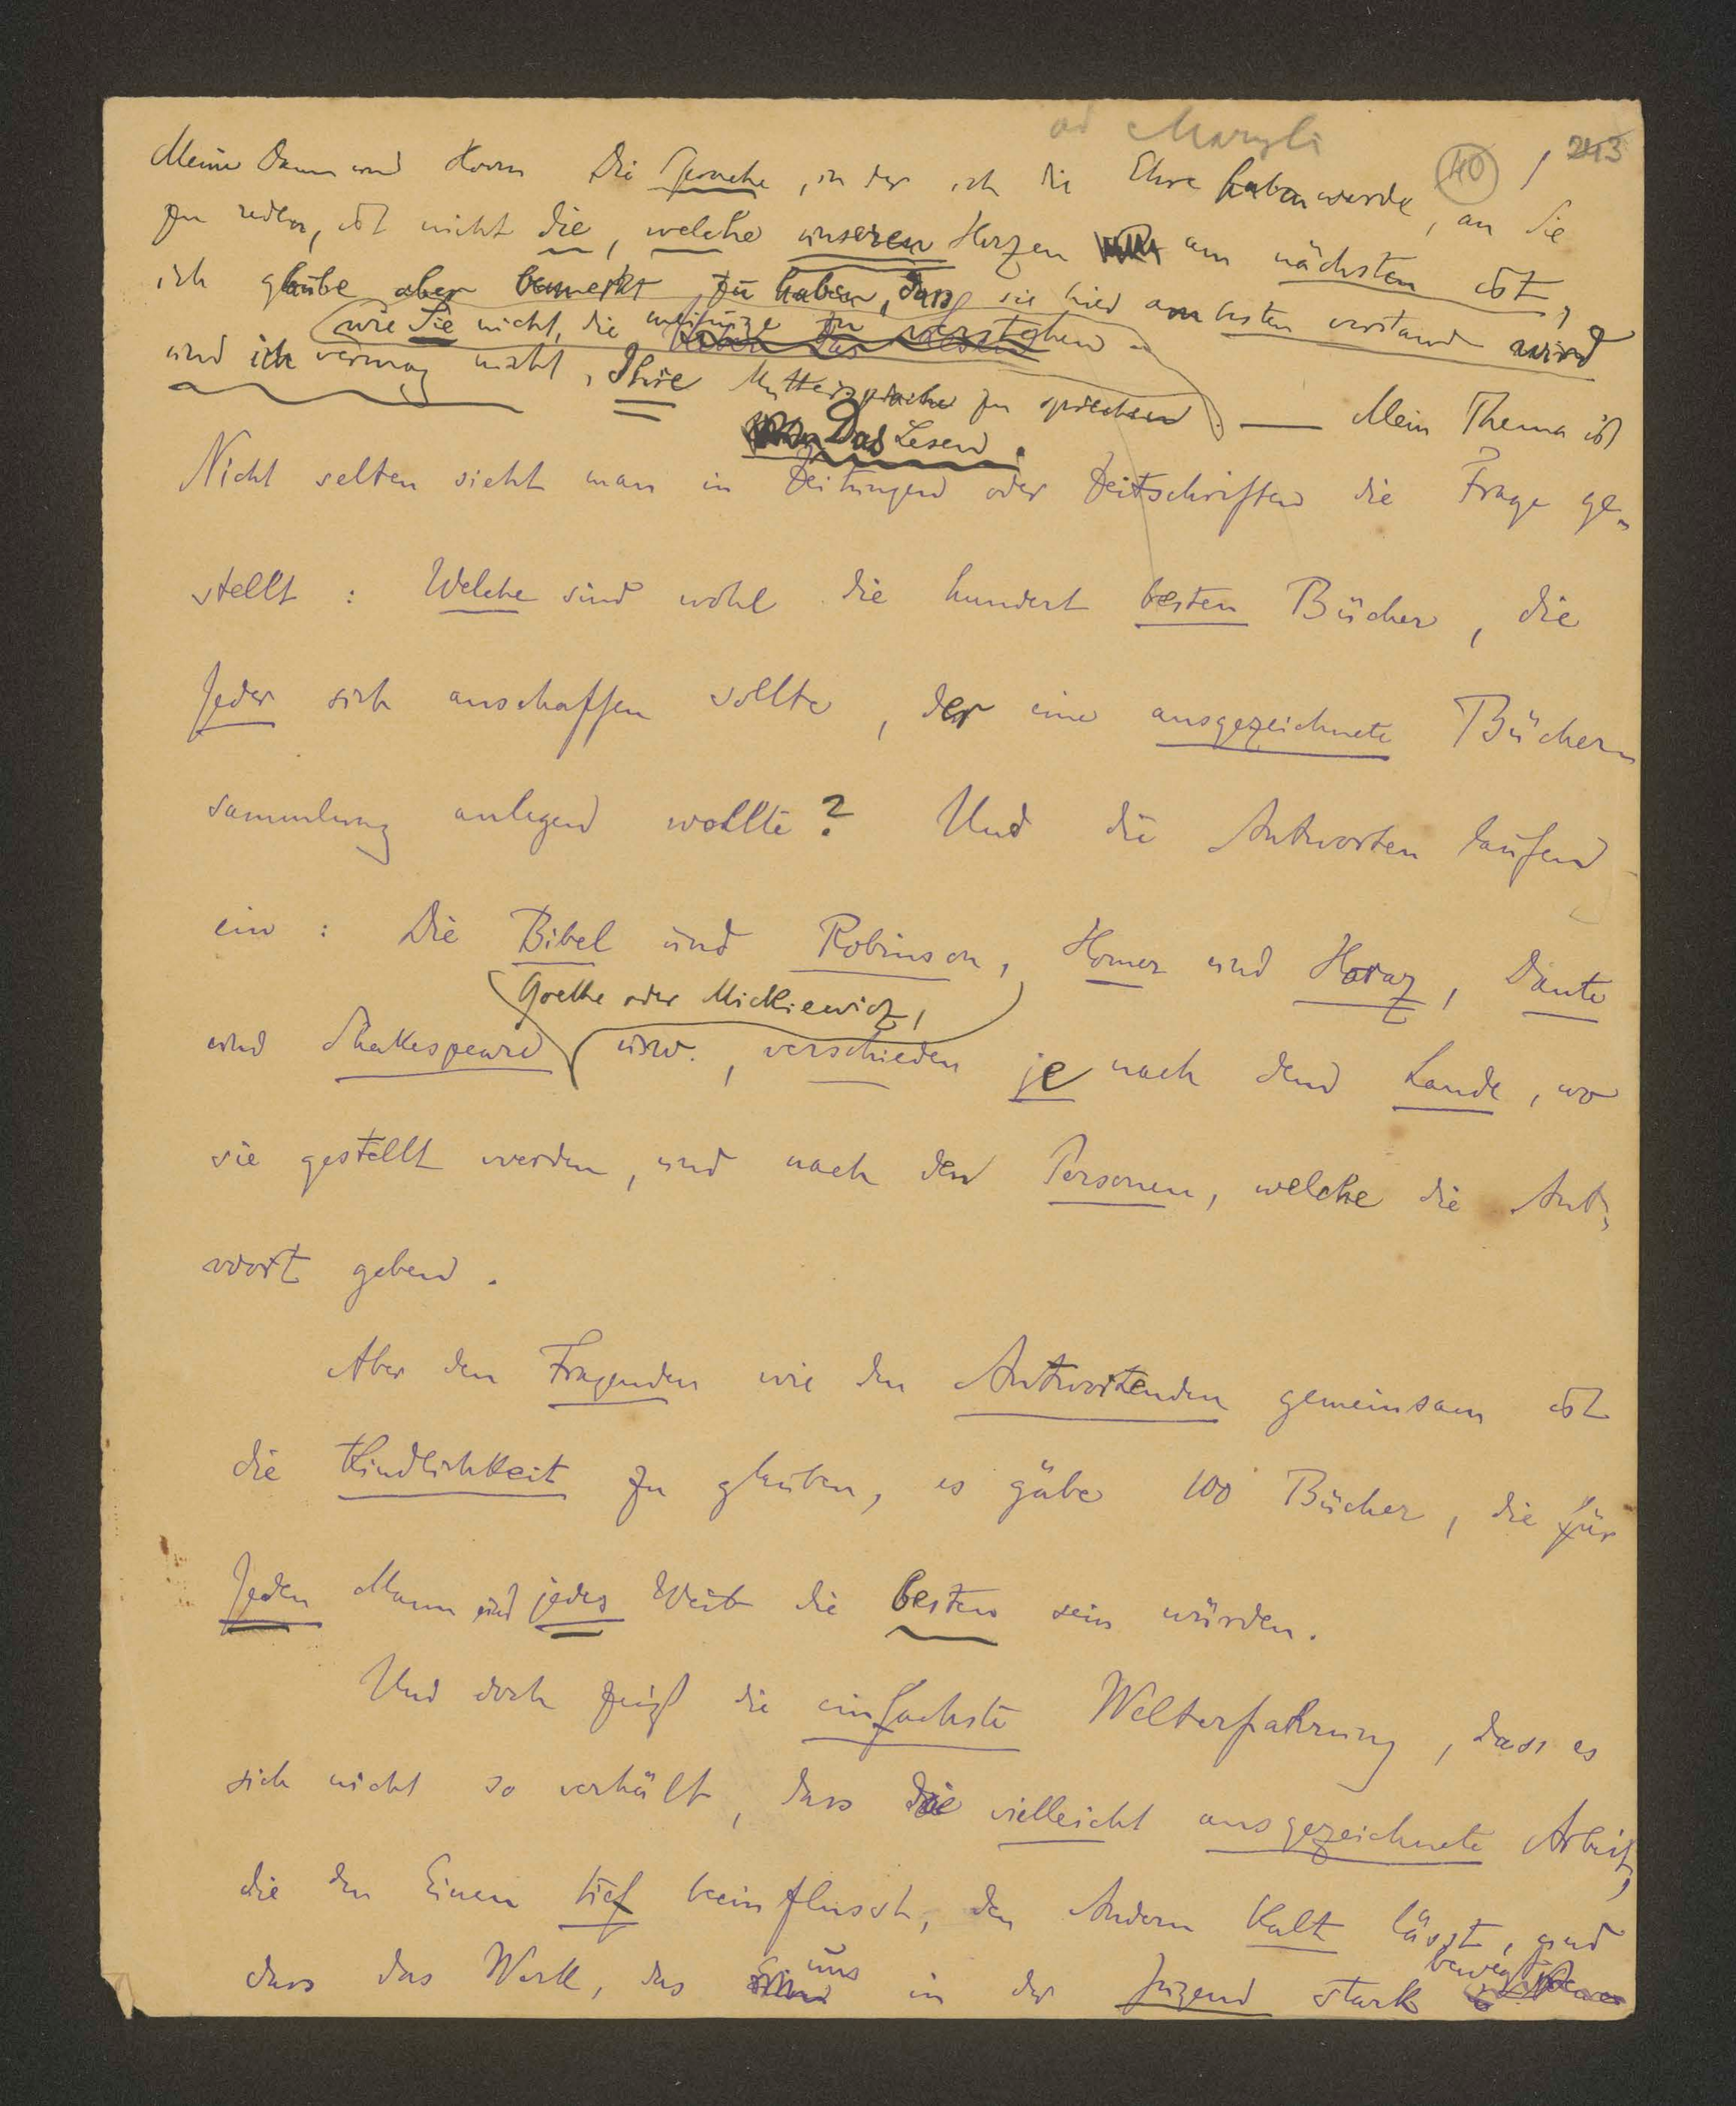 ad Maryli
40 / 243
Meine Damen und Herrn Die Sprache, in der ich die Ehre haben werde, an Sie
zu reden, ist nicht die, welche unseren Herzen am nächsten ist,
ich glaube aber bemerkt zu haben, dass sie hier am besten verstanden wird
wie Sie nicht, die meinige zu verstehen
und ich vermag nicht, Ihre Muttersprache zu sprechen. — Mein Thema ist
Das Lesen.
Nicht selten sieht man in Zeitungen oder Zeitschriften die Frage ge-
stellt : Welche sind wohl die hundert besten Bücher, die
Jeder sich anschaffen sollte, der eine ausgezeichnete Bücher-
sammlung anlegen wollte? Und die Antworten laufen
ein : Die Bibel und Robinson, Homer und Horaz, Dante
Goethe oder Mickiewicz,
und Shakespeare usw., verschieden je nach dem Lande, wo
sie gestellt werden, und nach den Personen, welche die Ant-
wort geben.
Aber den Fragenden wie den Antwortenden gemeinsam ist
die Kindlichkeit zu glauben, es gäbe 100 Bücher, die für
Jeden Mann und jedes Weib die besten sein würden.
Und doch zeigt die einfachste Welterfahrung, dass es
sich nicht so verhält, dass die vielleicht ausgezeichnete Arbeit,
die den Einen tief beeinflusst, den Andern kalt lässt, und
dass das Werk, das uns in der Jugend stark bewegt